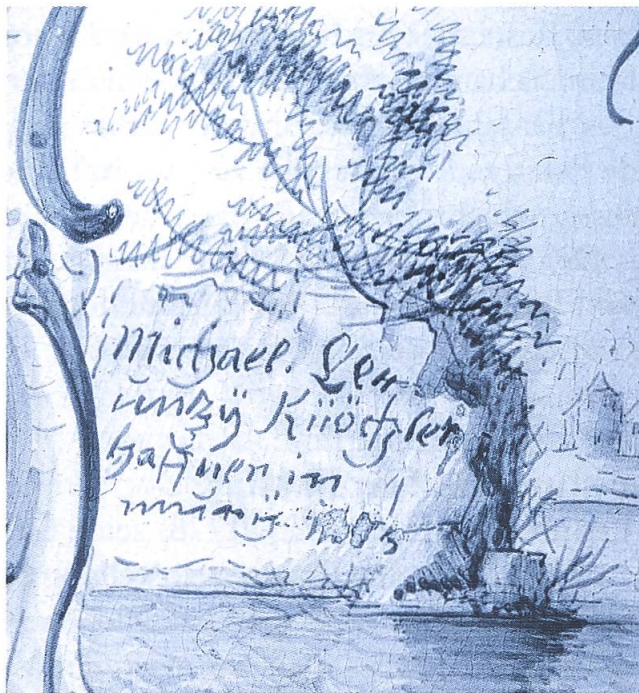 Michael. Leu
untzÿ Küöchler
haffner in
muriÿ